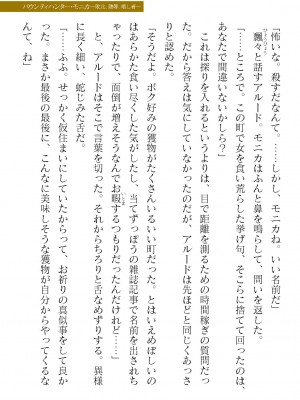 バウンティハンター・モニカ
「怖いな。殺すだなんて。……しかし、モニカね。いい名前だ」
飄々と話すアルード。モニカはふんと鼻を鳴らして、問いを返した。
「……ところで。この町で女を食い荒らした挙げ句、そこらに捨てて回ったのは、
あなたで間違いないかしら？」
これは探りを入れるというよりは、目で距離を測るための時間稼ぎの質問だっ
た。だから答えは気にしていなかったのだが、アルードは先ほどと同じくあっさ
りと認めた。
「そうだよ。ボク好みの獲物がたくさんいるいい町だった。とはいえめぼしいの
はあらかた食い尽くした気がしたし、当てずっぽうの雑誌記事で名前を出されち
ゃったりで、面倒が増えそうなんでお暇するつもりだったんだけれど……」
と、アルードはそこで言葉を切った。それからちろりと舌なめずりする。異様
に長く細い、蛇じみた舌だ。
「……ふふ。せっかく仮住まいにしていたからって、お祈りの真似事をして良か
った。まさか最後の最後に、こんなに美味しそうな獲物が自分からやってくるな
んて、ね」